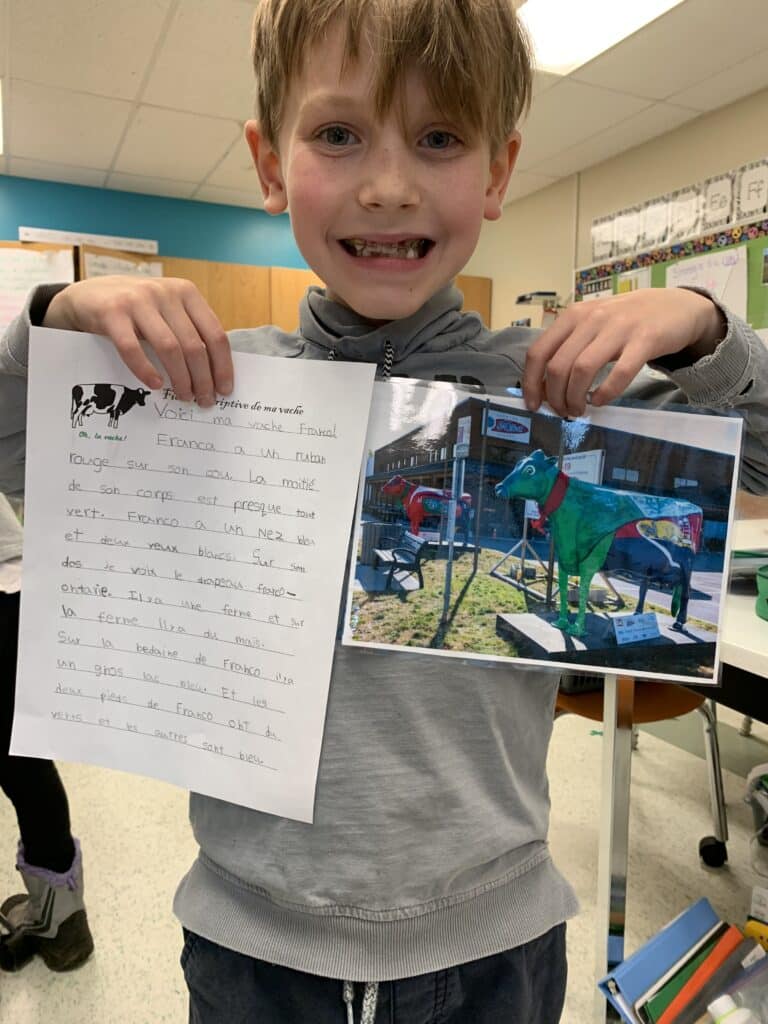 riptive de ma vache
Oh, la vache!
Voici ma vache Franco!
Franca a un ruban
rouge sur son cou. La moitié
de son corps est presque tout
vert. Franco a un Nez bleu
et deux yeux blancs. Sur son
dos je vois le drapeau franco-
ontarie. Ilya une ferme et sur
la ferme ilya du maïs.
Sur la bedaine de Franco ilya
un gros lac bleu. Et les
deux pieds de Franco ont du
verts et les autres sont bleu.
Ee Ff